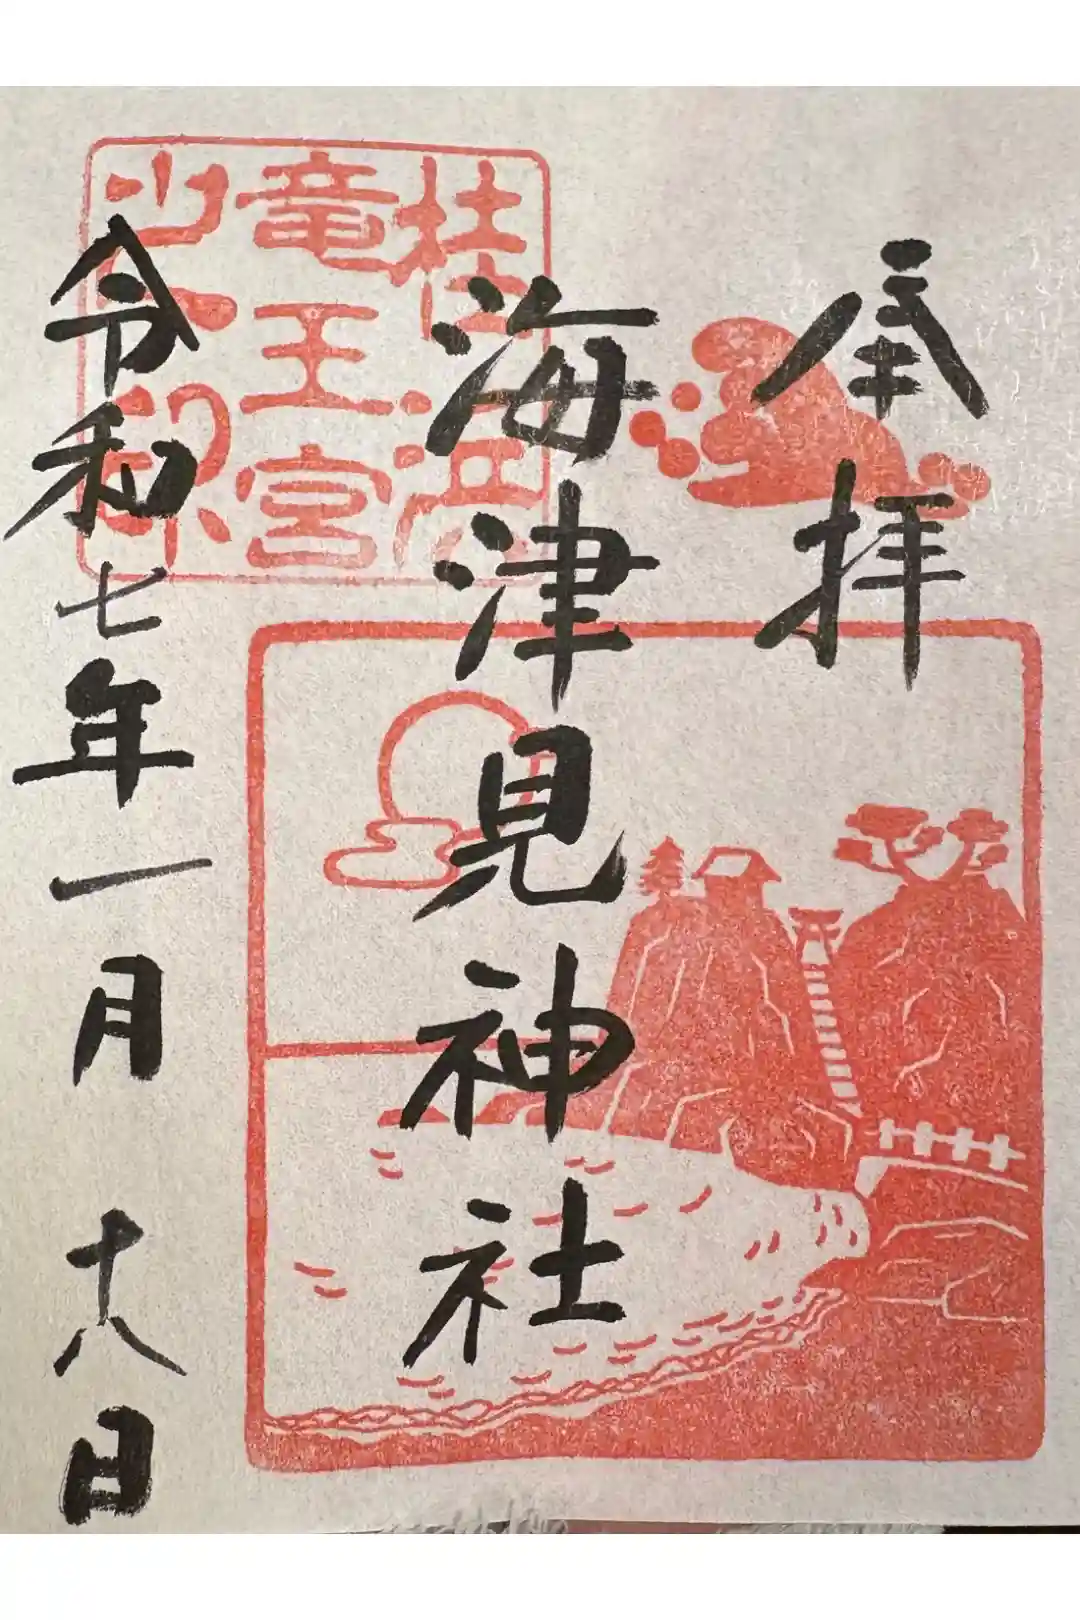 奉拝
海津見神社
令和七年一月十八日
桂浜
竜王宮
之印